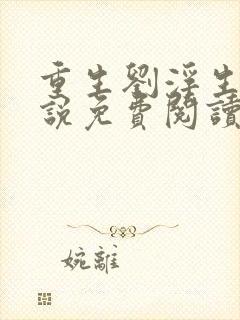 重生劉淫生
說免費閱讀
婉離